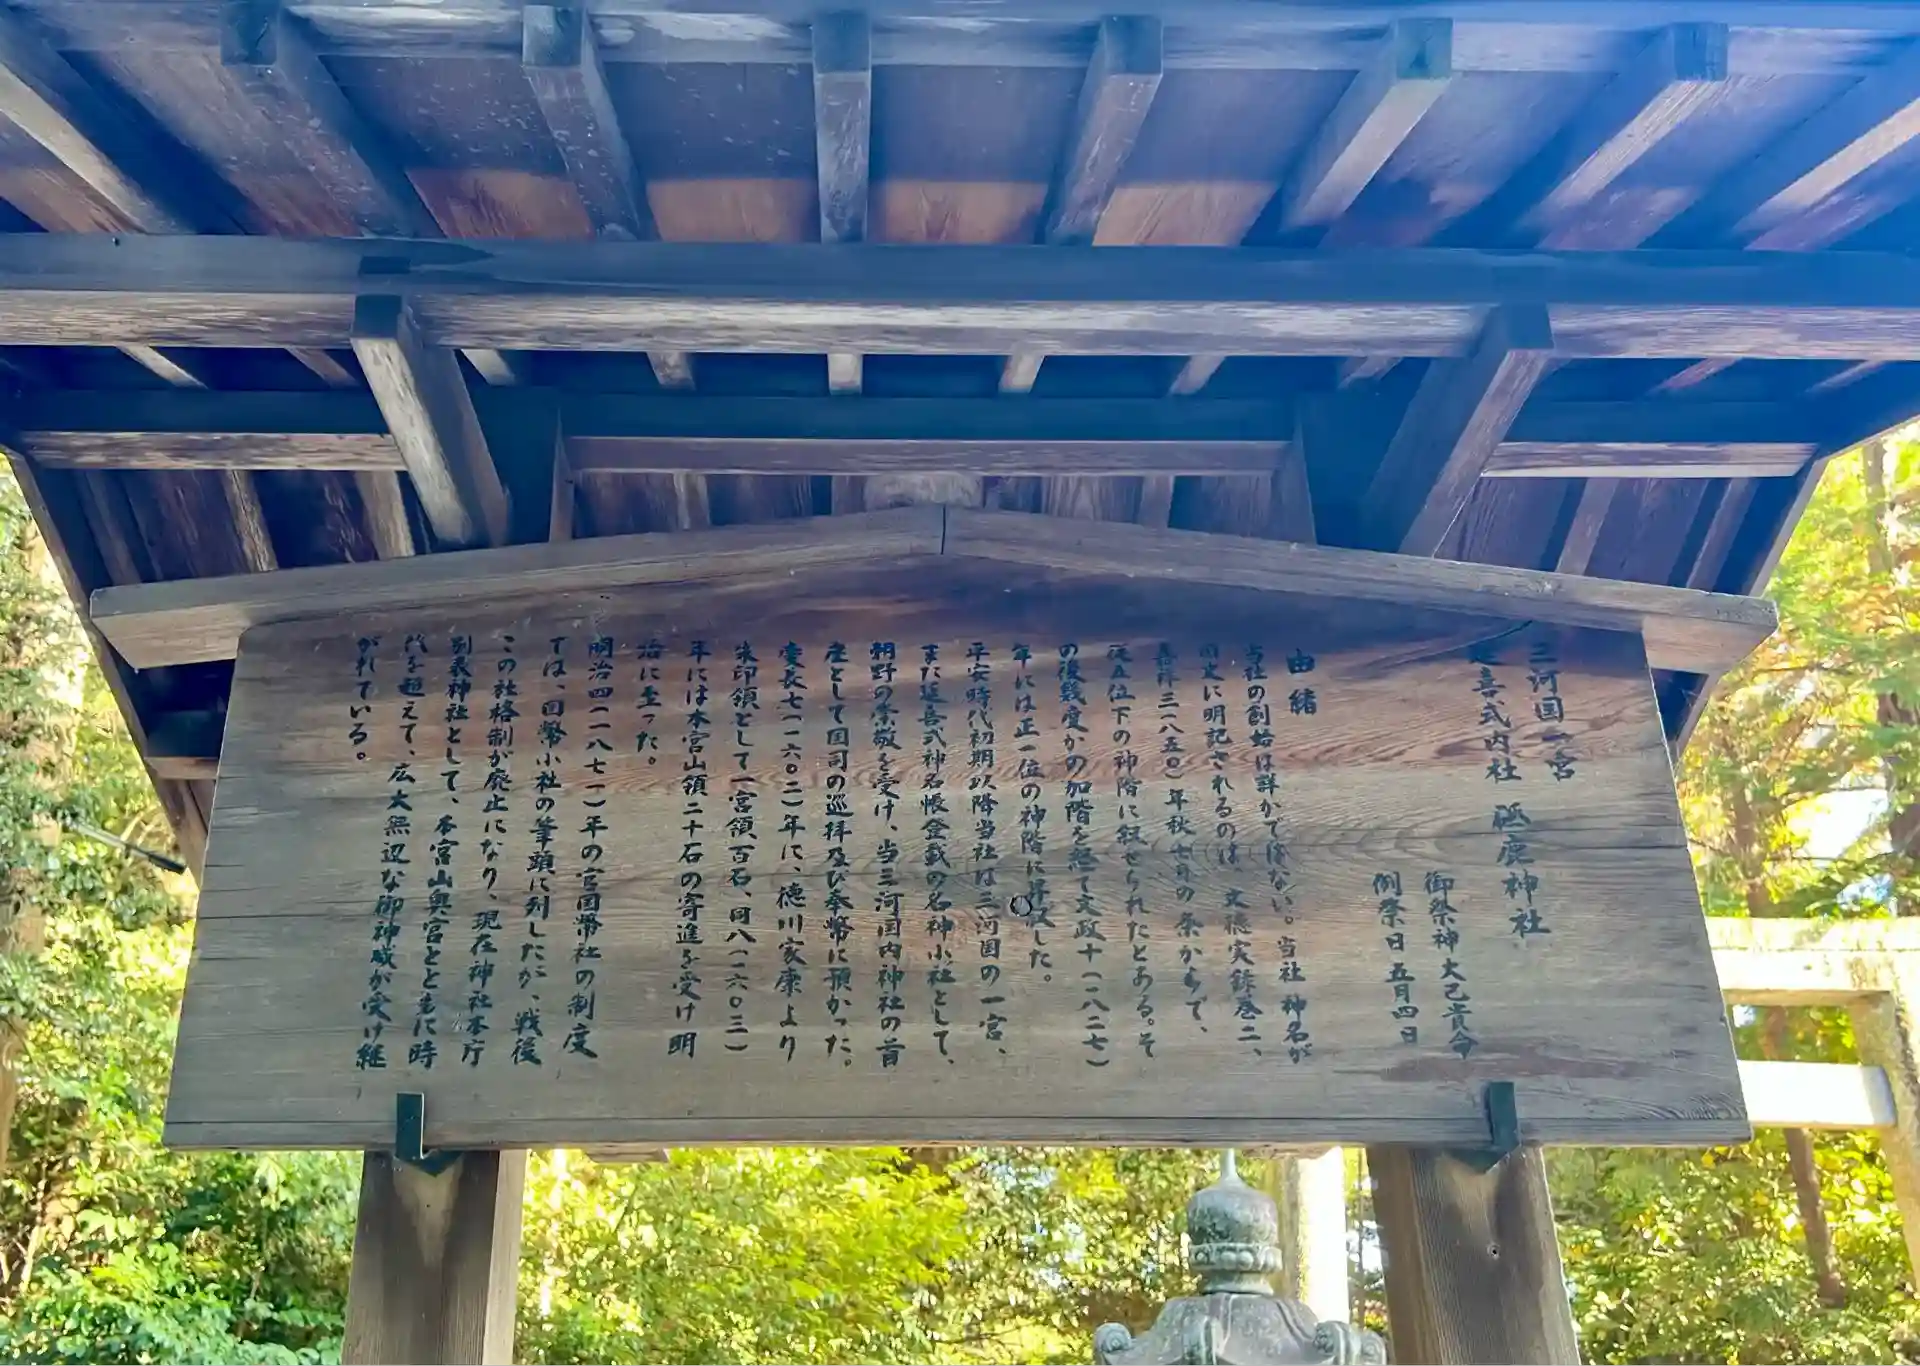 三河国一宮
延喜式内社 砥鹿神社
御祭神 大己貴命
例祭日 五月四日
由緒
当社の創始は詳かではない。当社神名が
国史に明記されるのは、文徳実録巻二、
嘉祥三(八五〇)年秋七月の条からで、
従五位下の神階に叙せられたとある。そ
の後幾度かの加階を経て文政十(一八二七)
年には正一位の神階に昇叙した。
平安時代初期以降当社は三河国の一宮、
また延喜式神名帳登載の名神小社として、
朝野の崇敬を受け、当三河国内神社の首
座として国司の巡拝及び奉幣に預かった。
慶長七(一六〇二)年に、徳川家康より
朱印領として一宮領百石、同八(一六〇三)
年には本宮山領二十石の寄進を受け明
治に至った。
明治四(一八七一)年の官国幣社の制度
では、国幣小社の筆頭に列したが、戦後
この社格制が廃止になり、現在神社本庁
別表神社として、本宮山奥宮とと共に時
代を超えて、広大無辺な御神威が受け継
がれている。